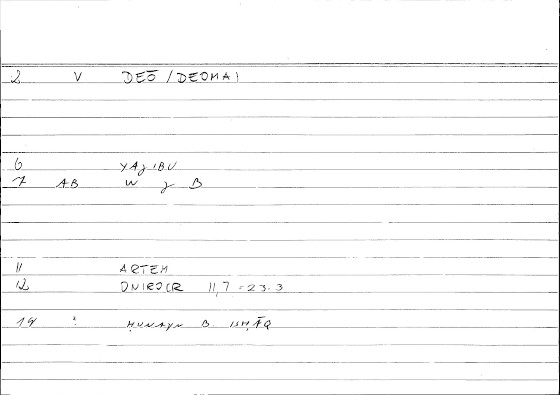 2 V DEŌ / DEOMAI
6 YAǧIBU
7 AB W ǧ B
11 ARTEM
12 ONIROCR 11,7 = 23.3
ḤUNAYN B. ISḤĀQ